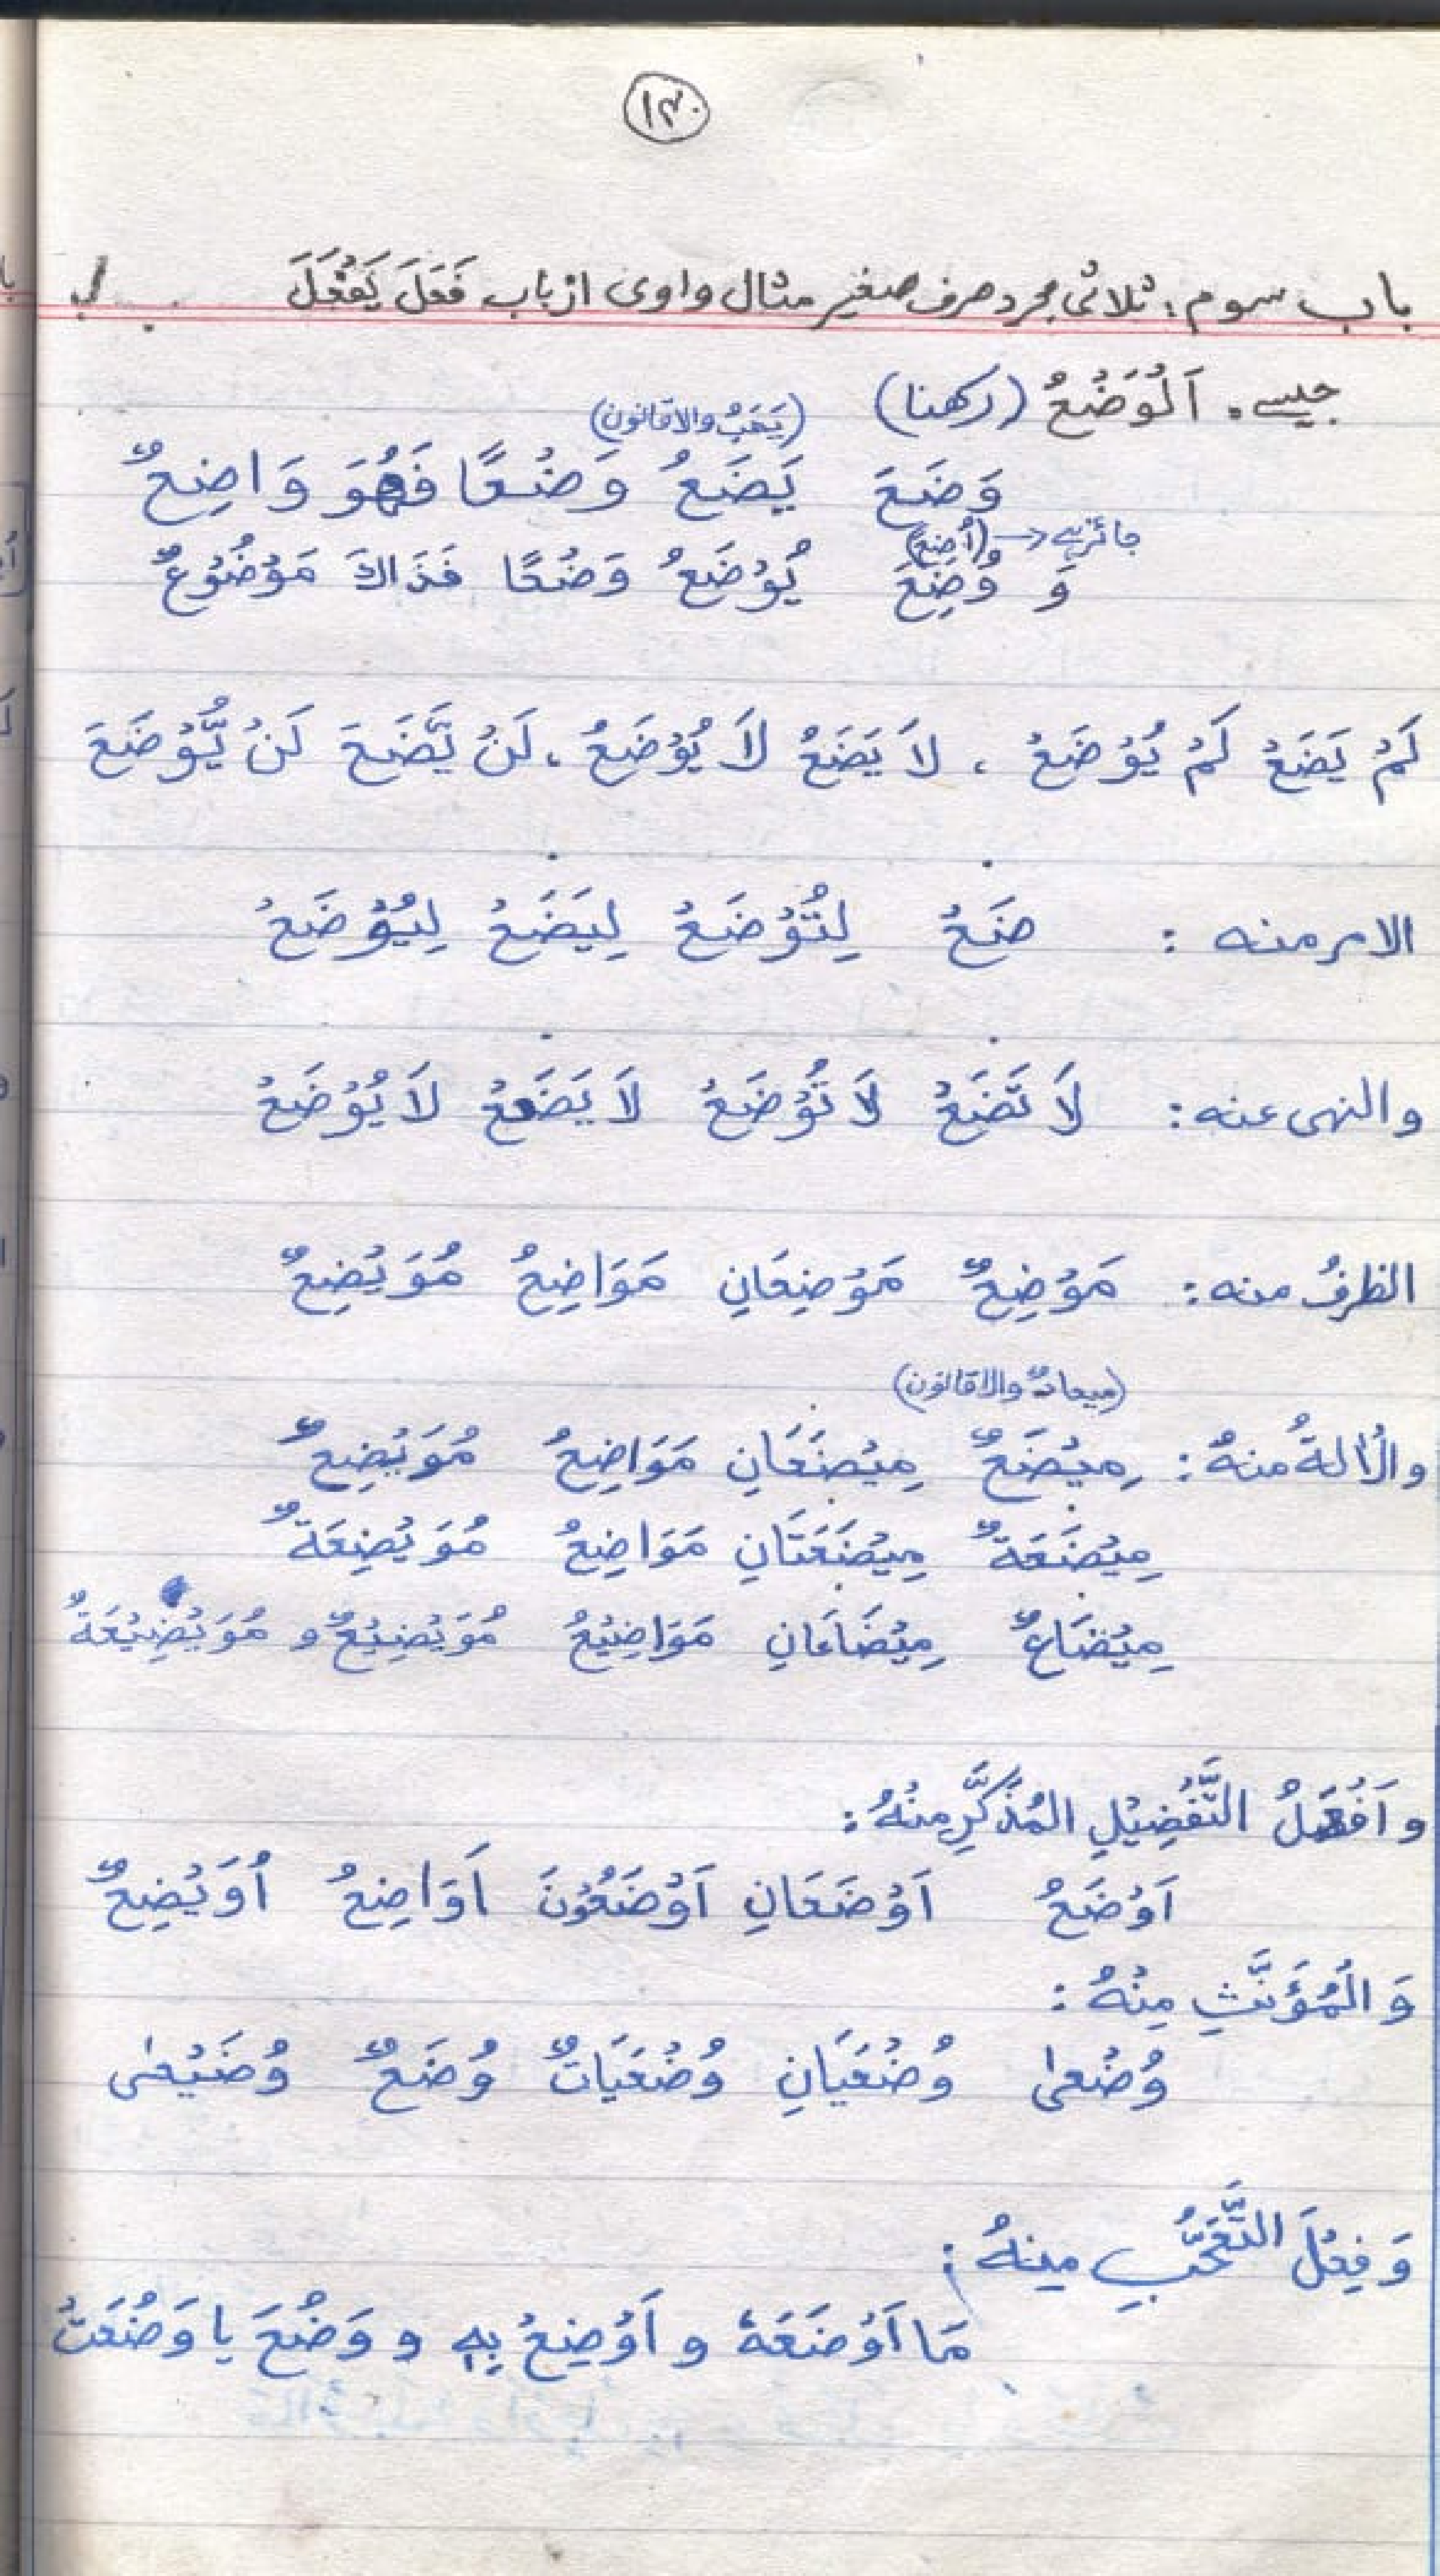 ۱۳۰
باب سوم: ثلاثی مجرد صرف صغیر مثال واوی از باب فَعَلَ يَفْعَلُ
جیسے۔ اَلْوَضْعُ (رکھنا)
(يَهَبُ والا قانون)
وَضَعَ يَضَعُ وَضْعًا فَهُوَ وَاضِعٌ
جائز ہے → (اُضِعَ)
وَ وُضِعَ يُوْضَعُ وَضْعًا فَذَاكَ مَوْضُوْعٌ
لَمْ يَضَعْ لَمْ يُوْضَعْ ، لَا يَضَعُ لَا يُوْضَعُ ، لَنْ يَّضَعَ لَنْ يُّوْضَعَ
الامر منه : ضَعْ لِتُوْضَعْ لِيَضَعْ لِيُوْضَعْ
والنهى عنه: لَا تَضَعْ لَا تُوْضَعْ لَا يَضَعْ لَا يُوْضَعْ
الظرفُ منه: مَوْضِعٌ مَوْضِعَانِ مَوَاضِعُ مُوَيْضِعٌ
(میعادٌ والا قانون)
والْاٰلةُ منهُ: مِيْضَعٌ مِيْضَعَانِ مَوَاضِعُ مُوَيْضِعٌ
مِيْضَعَةٌ مِيْضَعَتَانِ مَوَاضِعُ مُوَيْضِعَةٌ
مِيْضَاعٌ مِيْضَاعَانِ مَوَاضِيْعُ مُوَيْضِيْعٌ و مُوَيْضِيْعَةٌ
و اَفْعَلُ التَّفْضِيْلِ المُذَكَّرِ مِنْهُ:
اَوْضَعُ اَوْضَعَانِ اَوْضَعُوْنَ اَوَاضِعُ اُوَيْضِعٌ
وَ الْمُؤَنَّثِ مِنْهُ :
وُضْعٰى وُضْعَيَانِ وُضْعَيَاتٌ وُضَعٌ وُضَيْعٰى
وَ فِعْلَ التَّعَجُّبِ مِنهُ :
مَا اَوْضَعَهٗ و اَوْضِعْ بِهٖ و وَضُعَ يا وَضُعَتْ